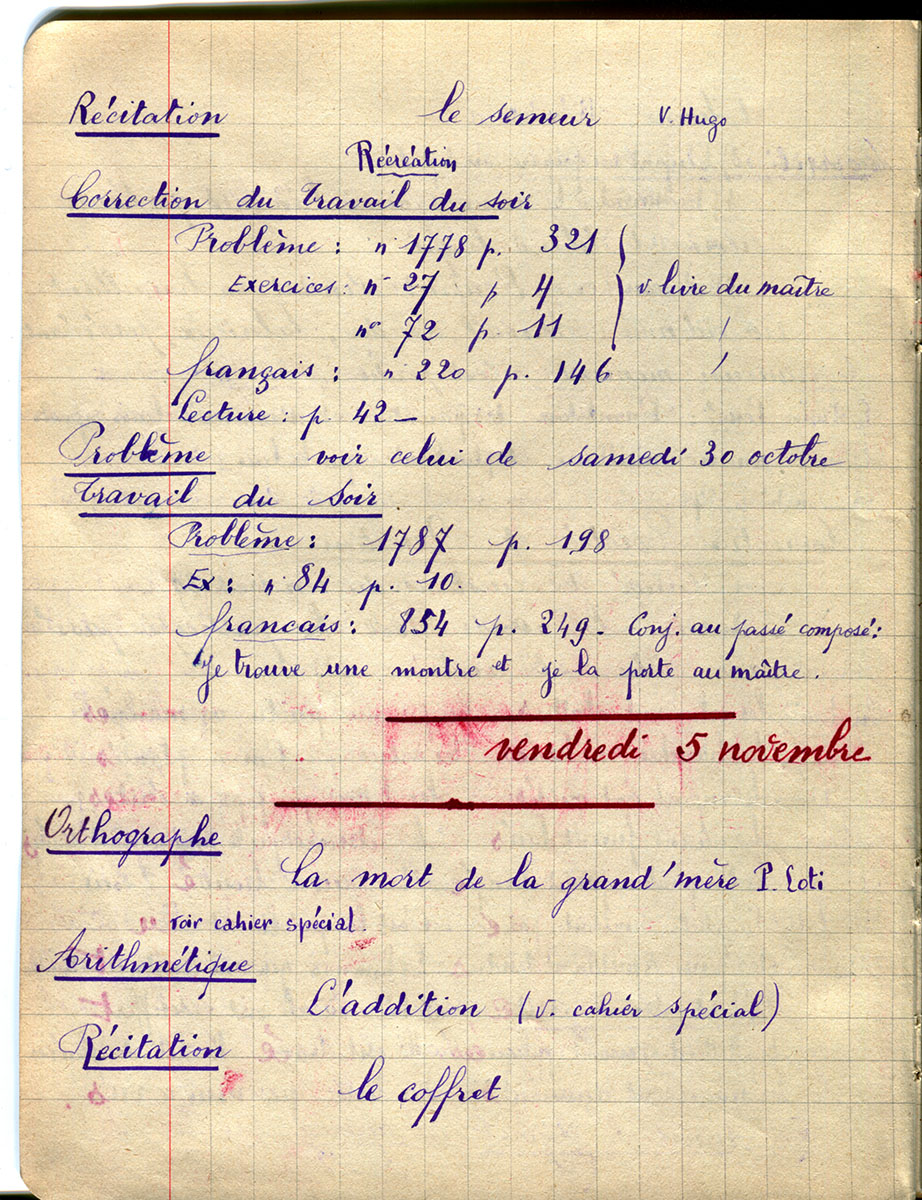 Récitation le semeur V. Hugo
Récréation
Correction du Travail du soir
Problème : n° 1778 p. 321
Exercices : n° 27 p 4 v. livre du maître
n° 72 p 11
français : n° 220 p. 146
Lecture : p. 42 –
Problème voir celui de samedi 30 octobre
Travail du soir
Problème : 1787 p. 198
Ex : n° 84 p. 10.
francais : 854 p. 249 - Conj. au passé composé :
Je trouve une montre et je la porte au maître.
vendredi 5 novembre
Orthographe
La mort de la grand'mère P. Loti
voir cahier spécial.
Arithmétique
L'addition (v. cahier spécial)
Récitation
le coffret